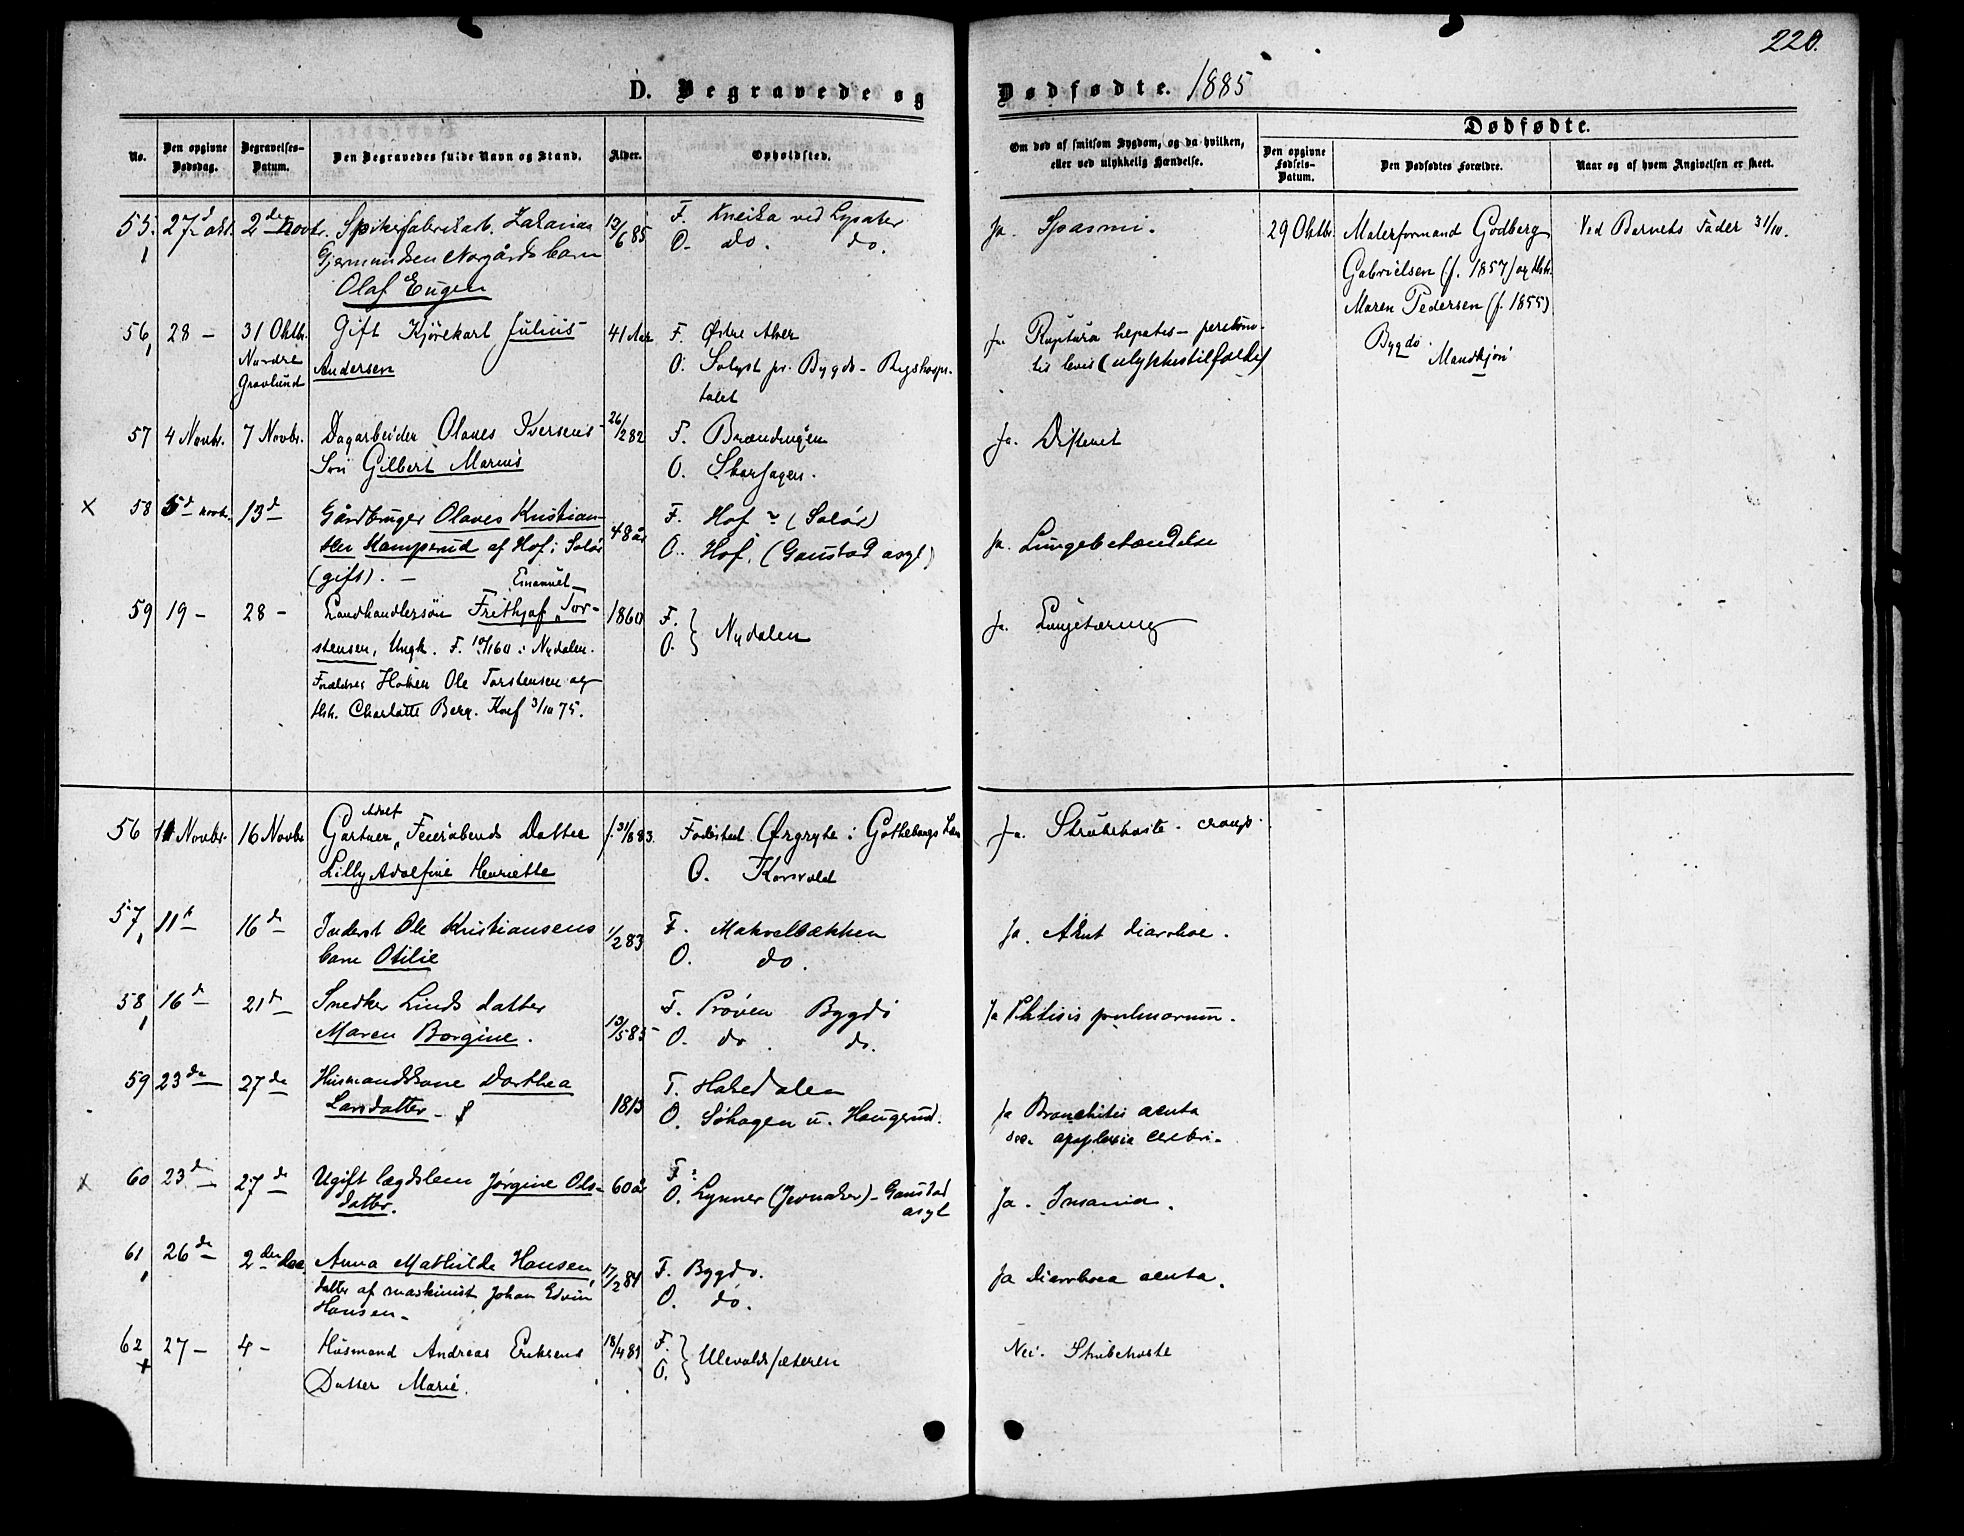 220.
D. Begravede og Dødfødte. 1885
No.
Den opgivne Dødsdag.
Begravelses-Datum.
Den Begravedes fulde Navn og Stand.
Alder.
Opholdsted.
Om død af smitsom Sygdom, og da hvilken,
eller ved ulykkelig Hændelse.
Dødfødte.
Den opgivne Fødsels-Datum.
Den Dødfødtes Forældre.
Naar og af hvem Angivelsen er skeet.
55. 27d okt. 2de Novbr. Spikerfabrikarb. Zakarias 12/6 85 F. Kneika ved Lysaker Ja. Spasmi. 29 Oktbr. Malerformand Godberg Ved Barnets Fader 31/10.
Gjermundsen Norgårds barn O. do. do. Gabrielsen (f. 1857) og Hstr.
Olaf Eugen Maren Pedersen (f. 1855)
Bygdø. Mandkjøn
56 28 - 31 Oktbr. Gift Kjørekarl Julius 41 Aar F. Østre Aker Ja. Ruptura hepatis - peritoni-
Nordre Andersen O. Solyst pr. Bygdø - Rigshospi- tis levis (ulykkestilfælde)
Gravlund talet
57 4 Novbr. 7 Novbr. Dagarbeider Olaves Iversens 26/2 82 F. Brændengen Ja. Difterit
Søn Gilbert Marius O. Skarsagen.
58 5d novbr. 13d Gårdbruger Olaves Kristian- 48 år F. Hof (Solør) Ja. Lungebetændelse
sen Kamperud af Hof i Solør O. Hof. (Gaustad asyl)
(gift). -
59 19 - 28 - Landhandlersøn Frithjof Emanuel Tor- 1860 F. O. } Nydalen Ja. Lungetæring
stensen, Ungk. F. 10/1 60 i Nydalen.
Forældres Hoken Ole Torstensen og
Hstr. Charlotte Berg. Konf 3/10 75.
56 11 Novbr. 16 Novbr Gartner Adolf Feierabends Datter f. 31/8 83. Fødested Ørgryte i Gothebergs Len Ja. Strubehoste - croup.
Lilly Adolfine Henriette O. Korsvold
57 11te 16de Inderst Ole Kristiansens 1/2 83 F. Makrelbækken Ja. Akut diarrhoe.
barn Otilie O. do.
58 16de 21de Snedker Linds datter 13/5 85 F. Prøven Bygdø Ja Phtisis pulmonum.
Maren Borgine. O. do. do.
59 23de 27de Husmandskone Dorthea 1813 F. Hakedalen Ja Bronchitis acuta
Larsdatter - O. Sohagen u. Haugerud. apoplexia cerebri.
60 23de 27de Ugift lægdslem Jørgine Ols- 60 år F: Ja. Insania.
datter. O. Lynner (Jevnaker) - Gaustad asyl
61 26de 2den Dec. Anna Mathilde Hansen, 17/2 84 F. Bygdø. Ja Diarrhoea acuta.
datter af maskinist Johan Edvin O. do.
Hansen.
62 27 - 4 - Husmand Andreas Eriksens 18/4 81 F. O. } Ullevoldsæteren Nei. Strubehoste
Datter Marie.